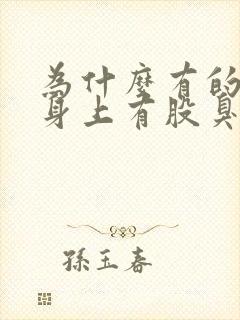 為什麼有的
身上有股臭
孫玉春